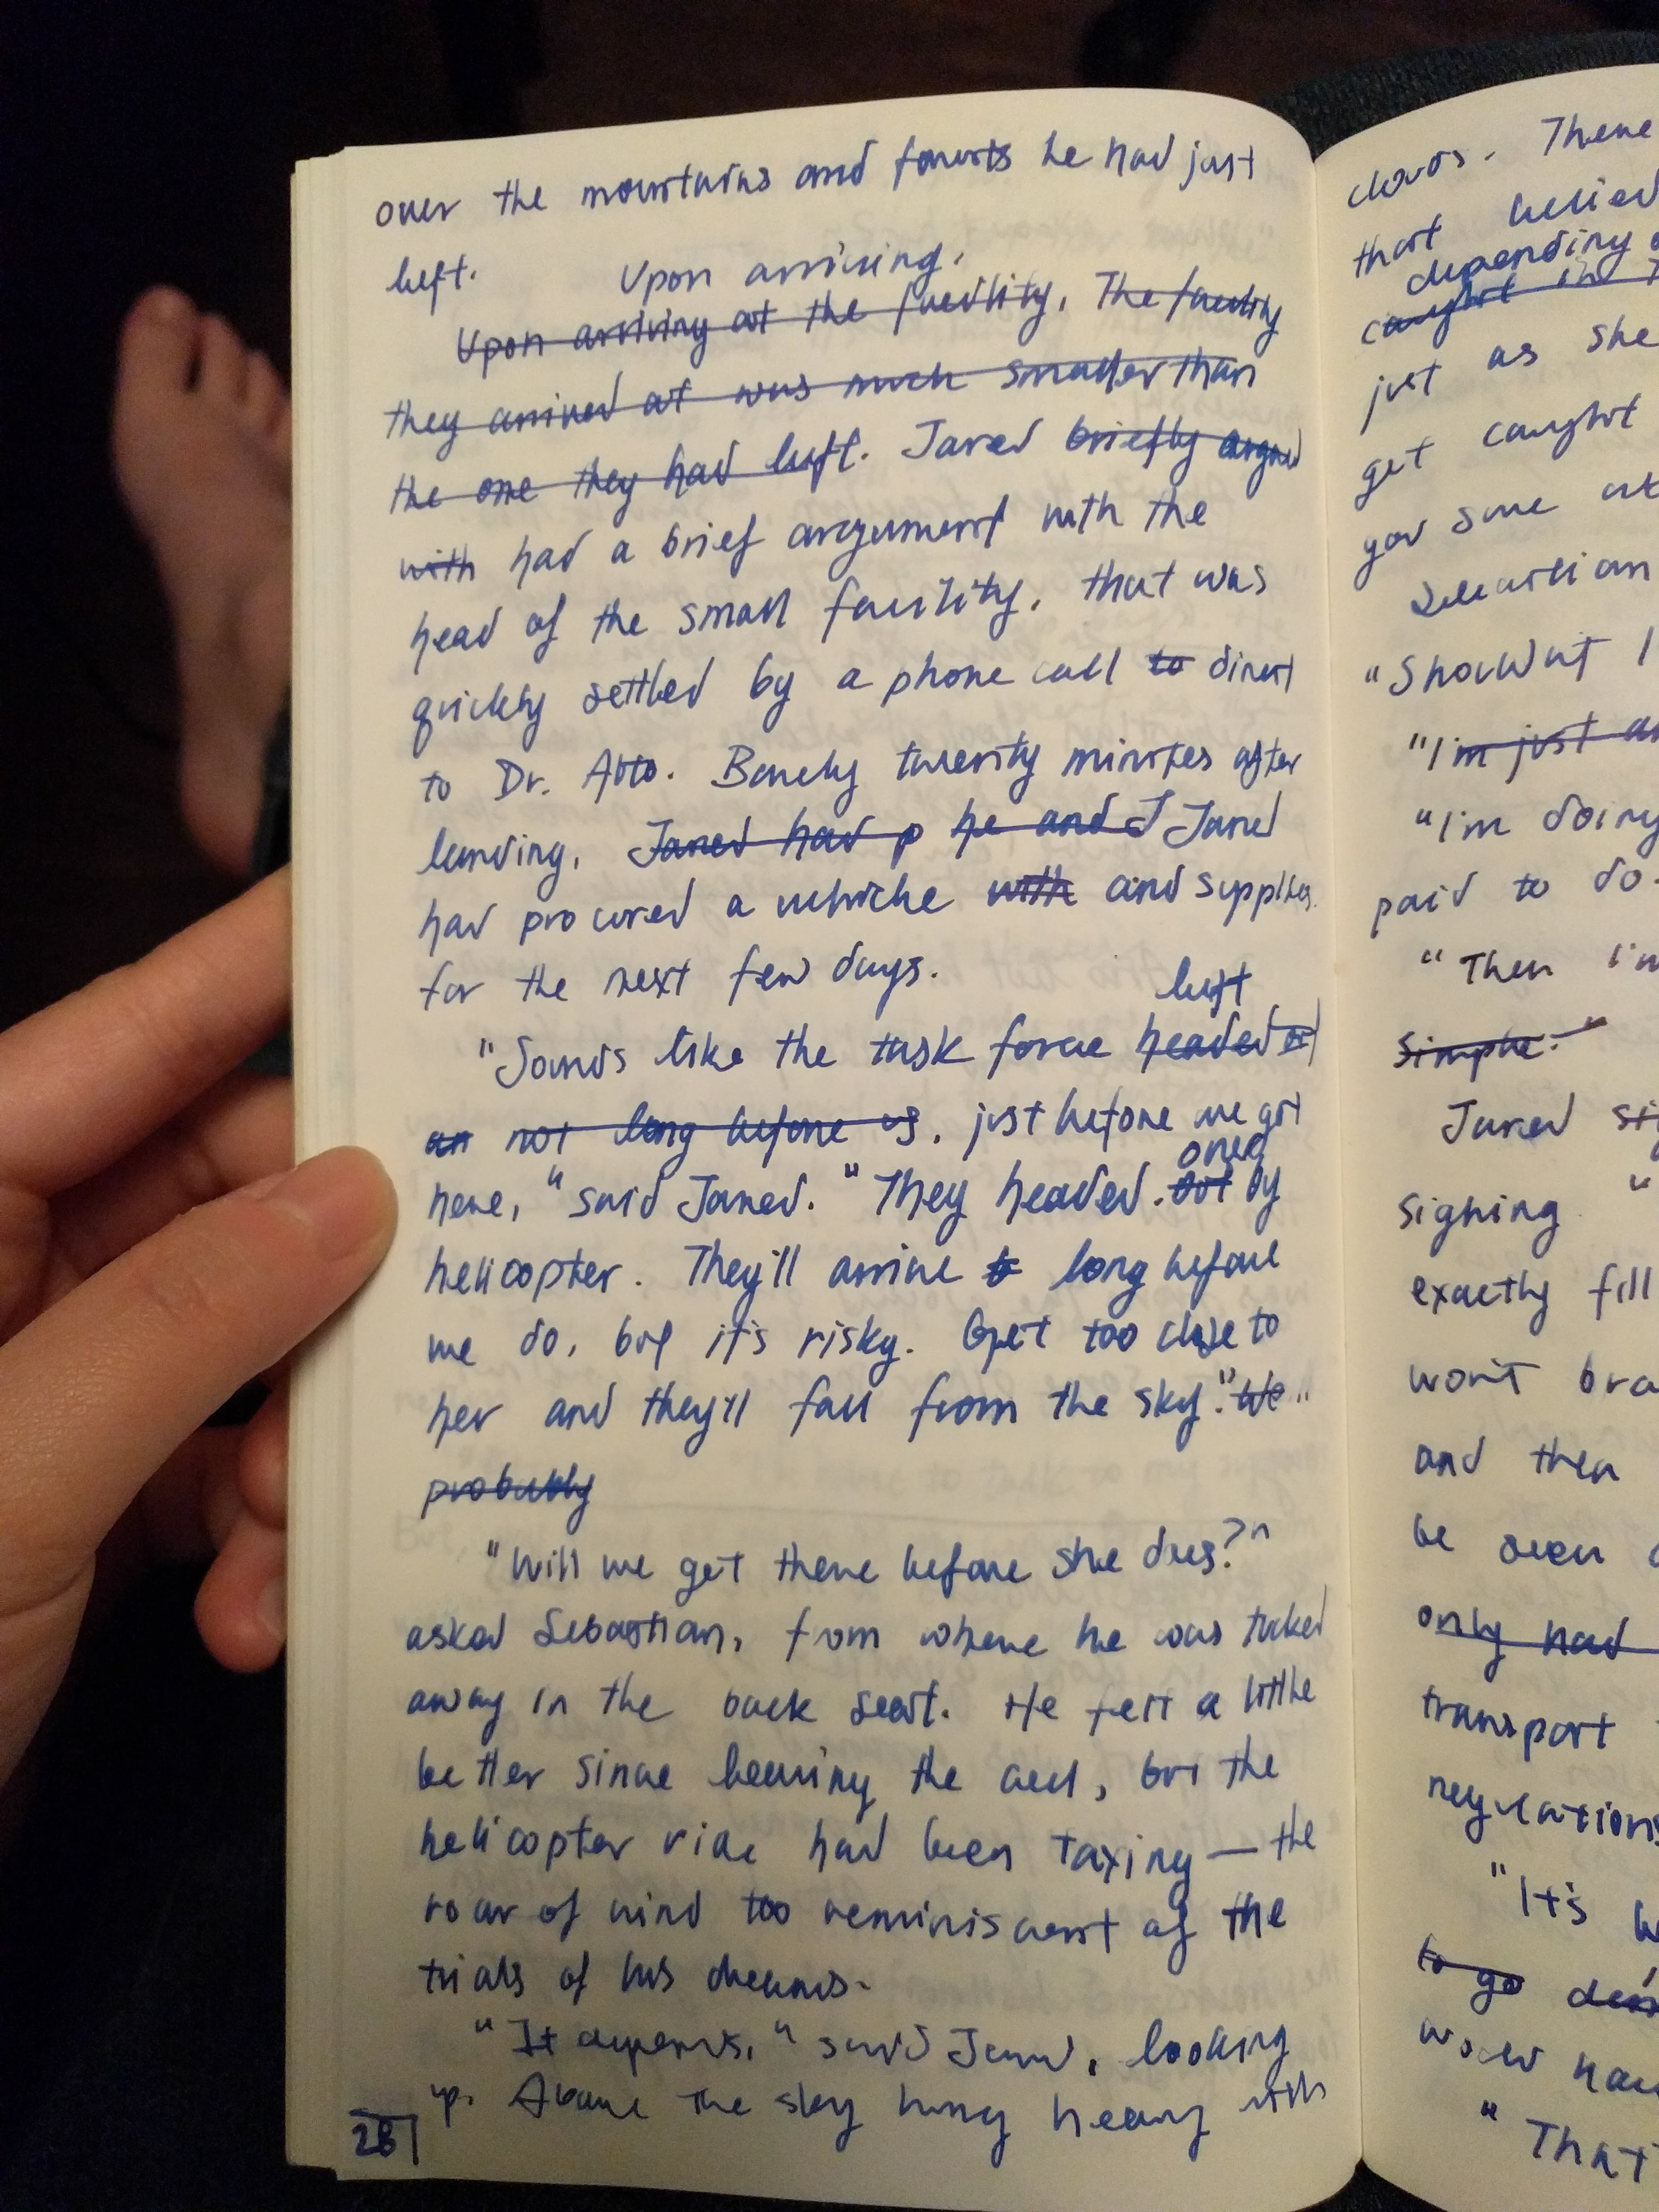 over the mountains and forests he had just
left. Upon arriving,
Upon arriving at the facility, The facility
they arrived at was much smaller than
the one they had left. Jared briefly argued
with had a brief argument with the
head of the small facility, that was
quickly settled by a phone call to direct
to Dr. Barely twenty minutes after
landing, Jared had p he and J Jared
had procured a vehicle with and supplies
for the next few days.
left
"Sounds like the task force headed
an not long before us, just before we got
over
here," said Jared. "They headed out by
helicopter. They'll arrive long before
we do, but it's risky. Get too close to
her and they'll fall from the sky." "We"
probably
"Will we get there before she does?"
asked Sebastian, from where he was tucked
away in the back seat. He felt a little
better since hearing the call, but the
helicopter ride had been taxing — the
roar of wind too reminiscent of the
trials of his dreams.
"It depends," said Jared, looking
up. Above the sky hung heavy with
28
clouds. There
that
depending
caught in
just as she
get caught
you sure
Sebastian
"Shouldn't I
"I'm just as
"I'm doing
paid to do.
"Then I'm
simple."
Jared
sighing "
exactly fill
won't
and then
be seen
only had
transport
regulations
"It's
to go
would have
"That